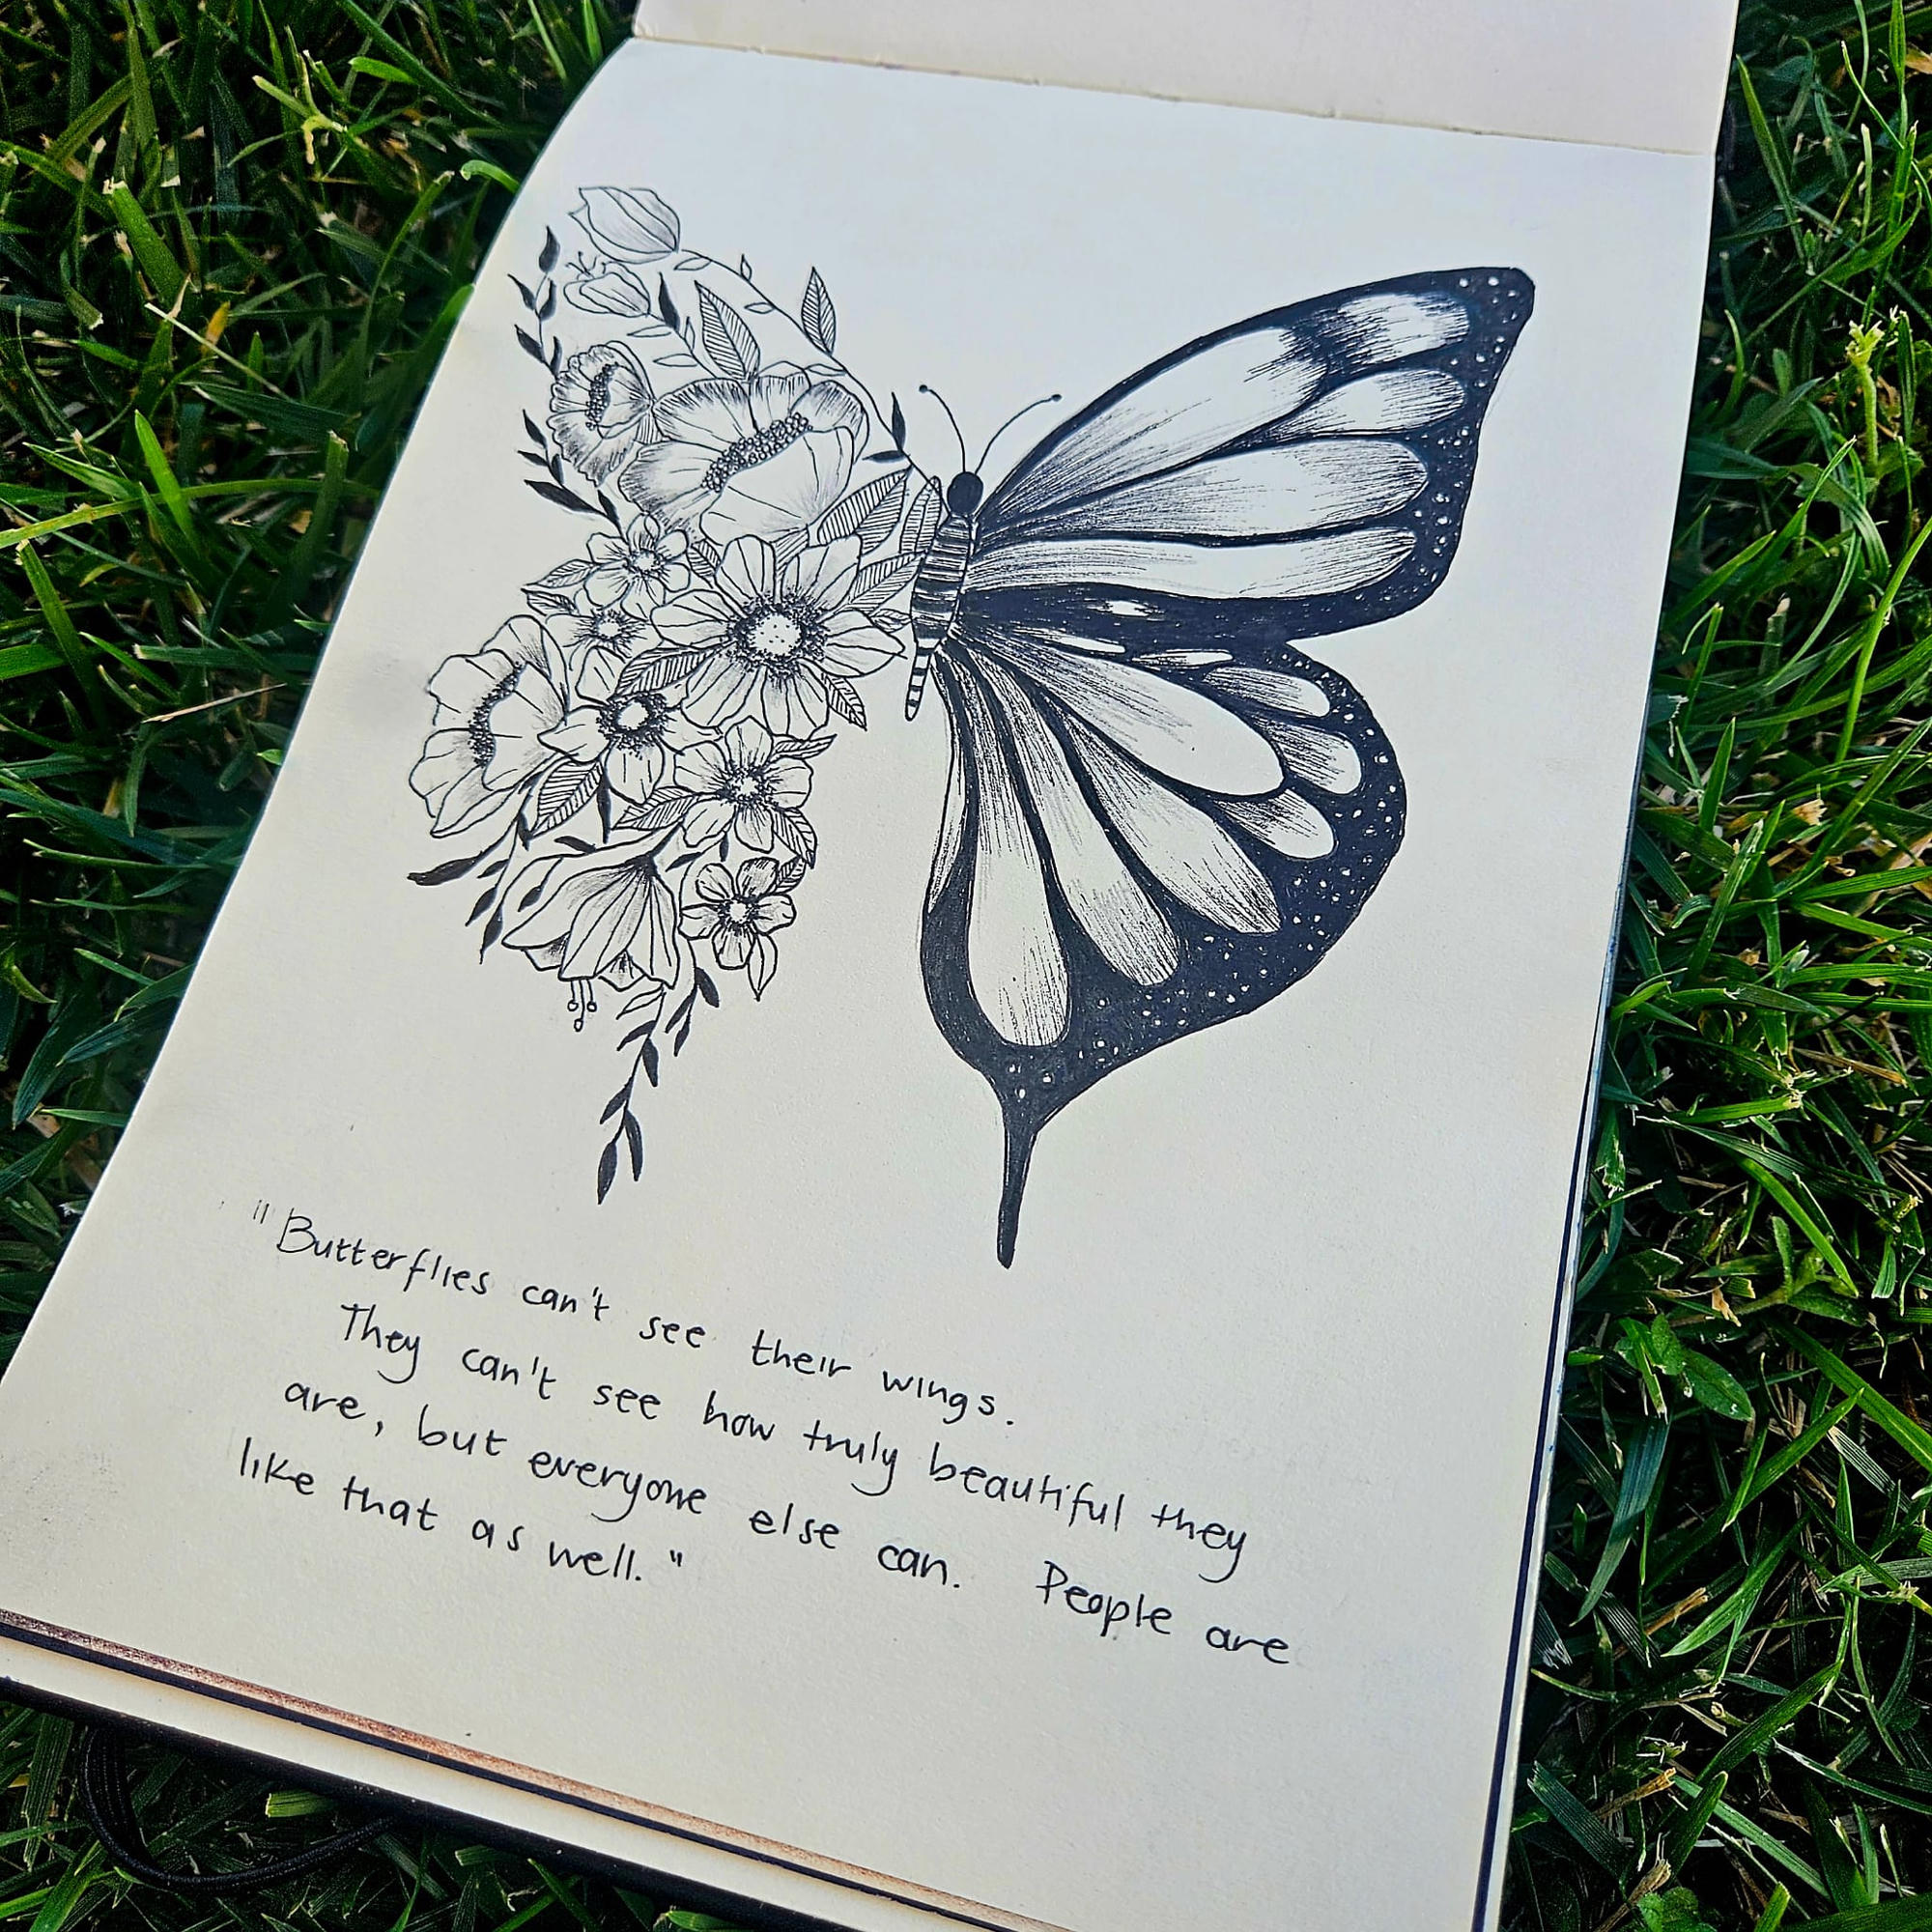 "Butterflies can't see their wings.
They can't see how truly beautiful they
are, but everyone else can. People are
like that as well."